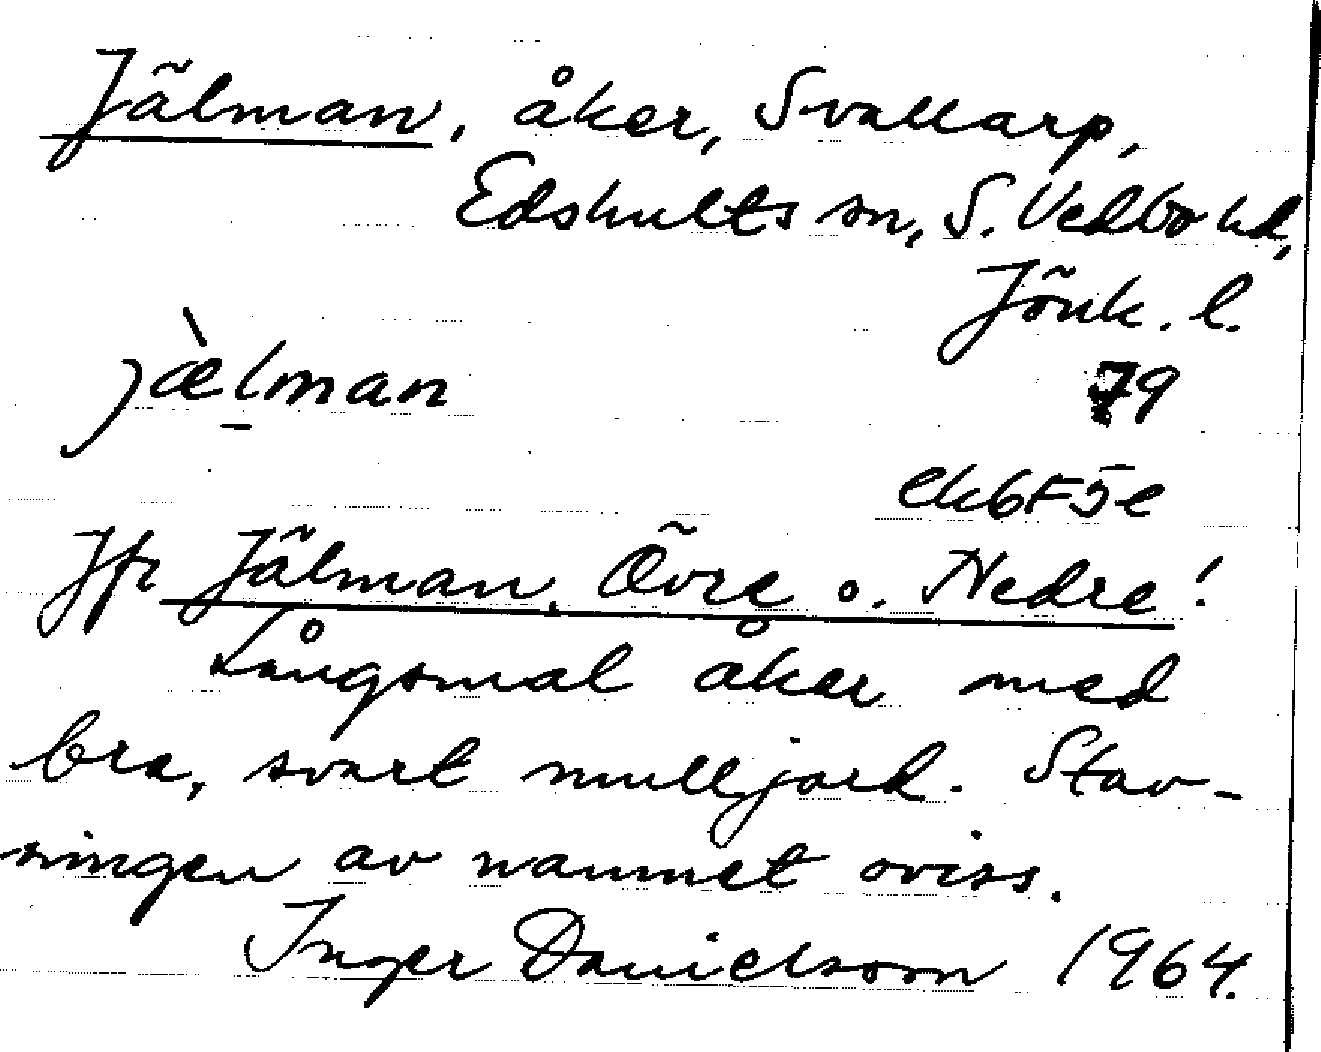 Jälman, åker, Svallarp,
Edshults sn, S. Vedbo hd,
Jönk. l.
jæ̀lman
79
ek6F5e
Jfr Jälman, Övre o. Nedre!
Långsmal åker med
bra, svart mulljord. Stav-
ningen av namnet oviss.
Inger Danielsson 1964.